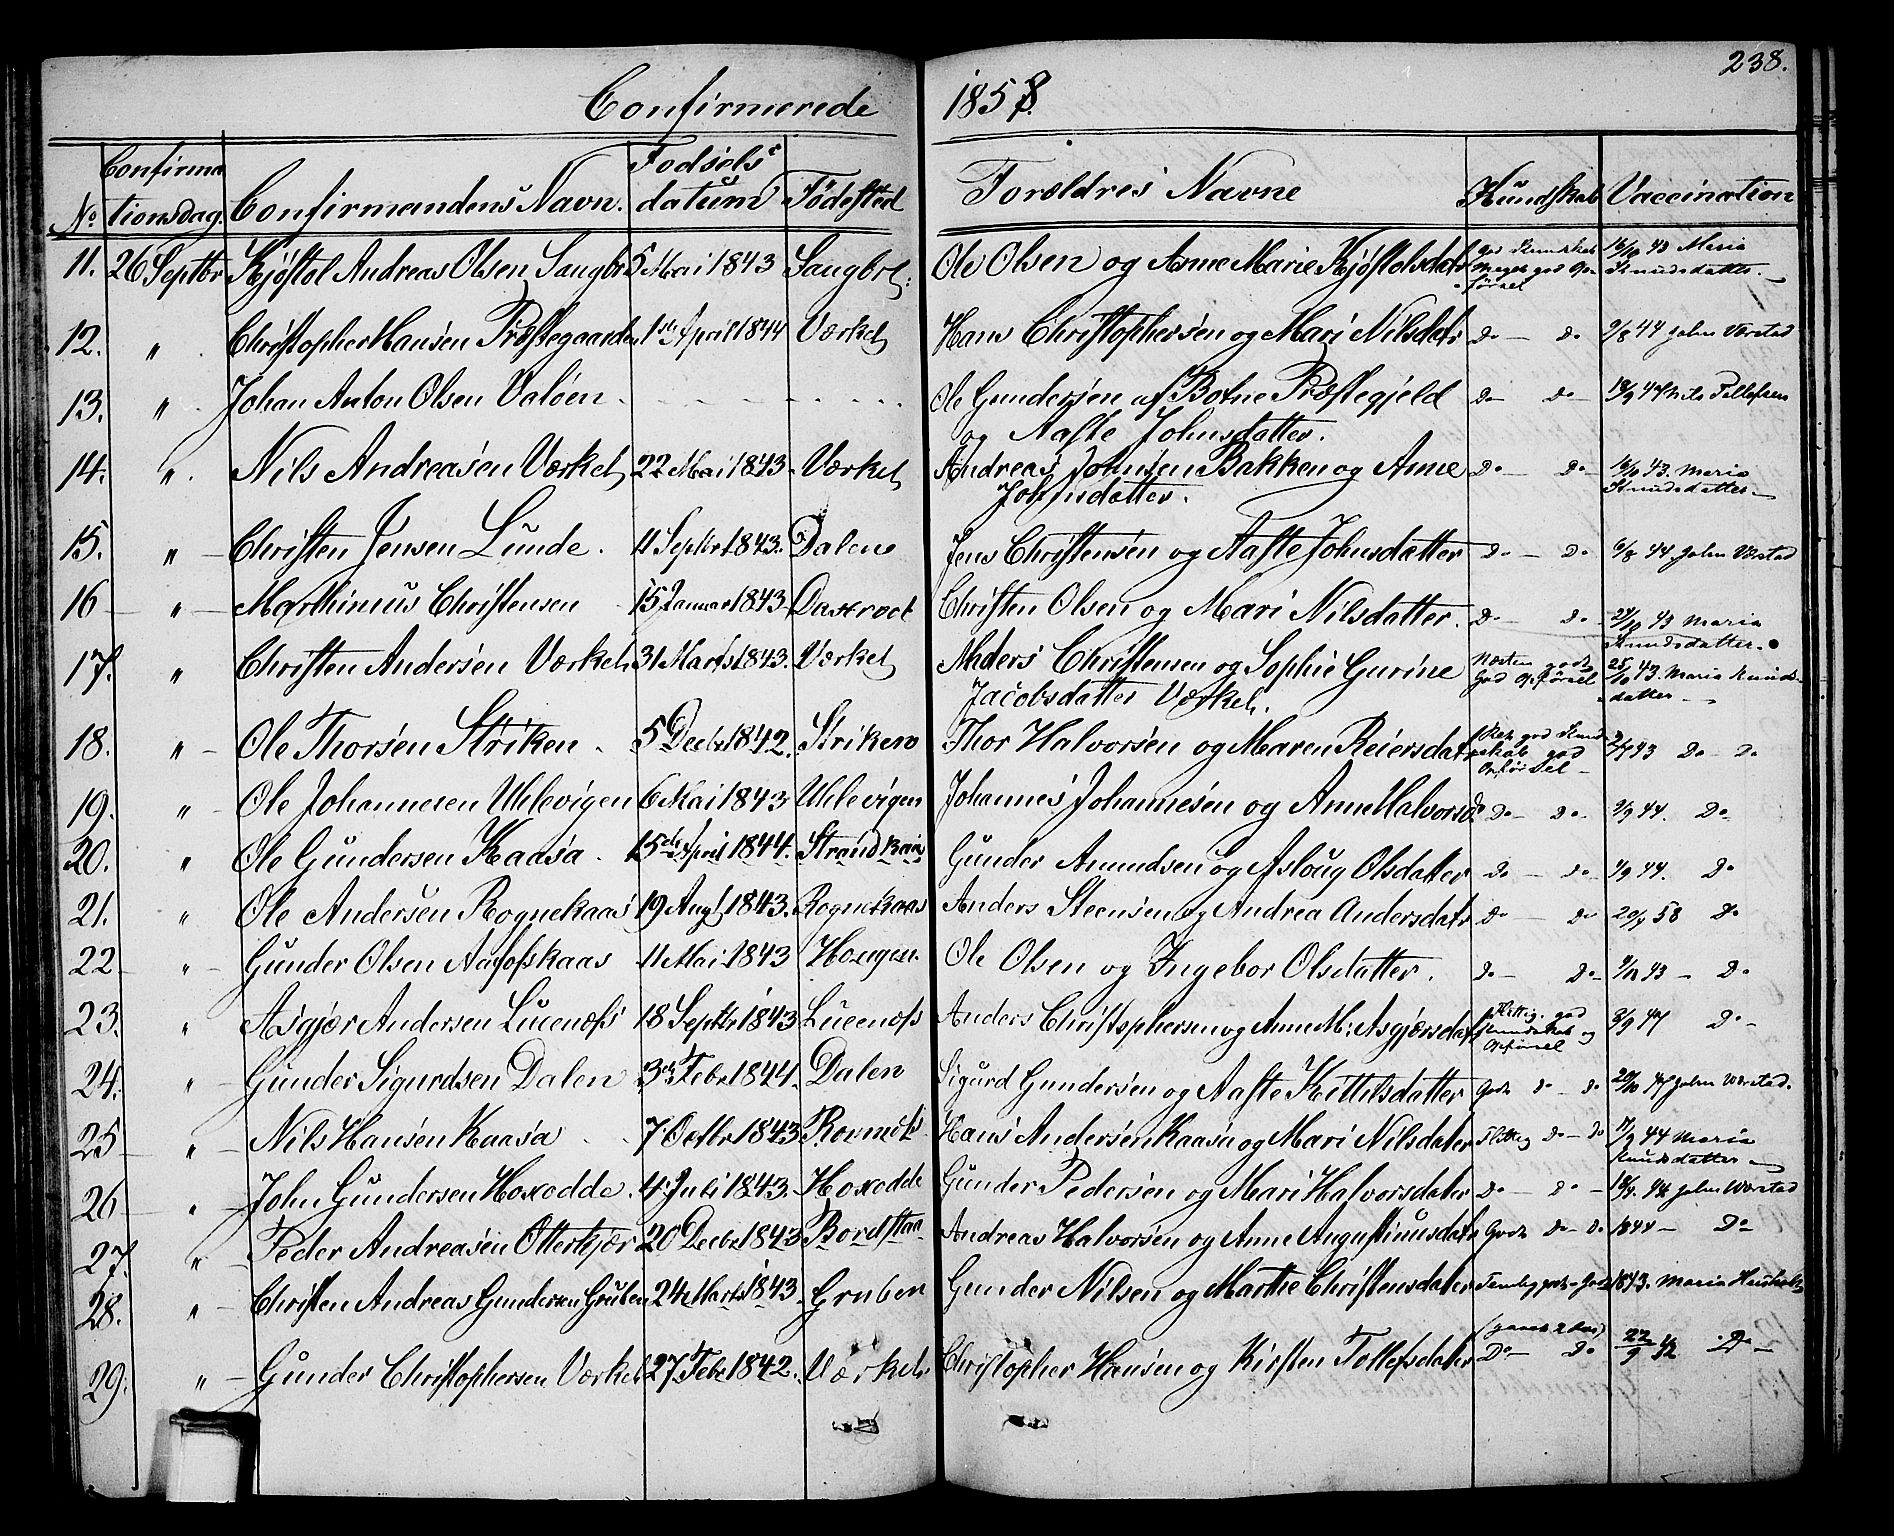 238.
Confirmerede 1858
No Confirmationsdag. Confirmandens Navn. Fødselsdatum Fødested Forældres Navne Kundskab Vaccination
11. 26 Septbr Kjøstol Andreas Olsen Sangbr 5 Mai 1843 Sangbrl: Ole Olsen og Anne Marie Kjøstolsdatr god Kundskab 16/10 43 Maria
meget god Op- Knudsdatter.
førsel
12. " Christopher Hansen Præstegaarden 1ste April 1844 Værket Hans Christophersen og Mari Nilsdatr Do — Do 9/8 44 John Værstad
13. " Johan Anton Olsen Valøen Ole Gundersen af Botne Præstegjeld Do Do 18/9 44 Nils Tellefsen
og Aaste Johnsdatter.
14. " Nils Andreasen Værket 22 Mai 1843 Værket Andreas Johnsen Bakken og Anne Do — Do 16/10 43. Maria
Johnsdatter. Knudsdatter
15. " Christen Jensen Lunde. 11 Septbr 1843. Dalene Jens Christensen og Aaste Johnsdatter Do — Do 6/8 44 John Værstad
16 " Marthinius Christensen 15 Januar 1843 Christen Olsen og Mari Nilsdatter. Do Do 24/10 43 Maria
Knudsdatter.
17. " Christen Andersen Værket 31 Marts 1843. Værket Anders Christensen og Sophie Gurine Næsten godk 25/10 43. Maria Knuds-
Jacobsdatter Værket. God Opførsel datter
18. " Ole Thorsen Striken. 5 Decbr 1842. Striken Thor Halvorsen og Maren Reiersdatr god Kund 43 Do Do
skab god
Opførsel
19. " Ole Johannesen Uhlevigen 6 Mai 1843 Uhlevigen Johannes Johannesen og Anne Halvorsd Do — Do 9/9 44. Do
20. " Ole Gundersen Kaasa. 15de April 1844. Gunder Amundsen og Asloug Olsdatter Do — Do 1/9 44. Do
21. " Ole Andersen Rognekaas 19 Augt 1843. Rognekaas Anders Steensen og Andrea Andersdatr Do — Do 58 Do
22 " Gunder Olsen Aafoskaas 11 Mai 1843 Hougen. Ole Olsen og Ingebor Olsdatter. Do — Do 9/10 43 — Do
23. " Asgjær Andersen Lucenæss 18 Septbr 1843 Lucenæss Anders Christophersen og Anne M: Asgjærsdatr Flittig. god 3/9 44 Do
Kundskab og
Opførsel
24. " Gunder Sigurdsen Dalen 3die Febr 1844. Dalen Sigurd Gundersen og Aaste Kittilsdatter Godk Do — Do 44 John Værstad.
25 " Nils Hansen Kaasa 7 Octbr 1843 Hans Andersen Kaasa og Mari Nilsdater Flittig Do — Do 17/9 44 Maria
Knudsdatter
26 " John Gundersen Hoxodde. 4 Juli 1843. Hoxodde Gunder Pedersen og Mari Halvorsdater Do — Do 18/9. 44 John Værstad
27. " Peder Andreasen Otterkjær 20 Decbr 1843 Bordstaa Andreas Halvorsen og Anne Augustinusdatr Godk Do — Do 1844 — Do
28. " Christen Andreas Gundersen Gruben 24 Marts 1843. Gruben Gunder Nilsen og Marthe Christensdater Temlig godk God 1843. Maria
29. " Gunder Christophersen Værket 27 Febr 1842. Værket Christopher Hansen og Kirsten Tollefsdater Do — Do 22/9 42 Do